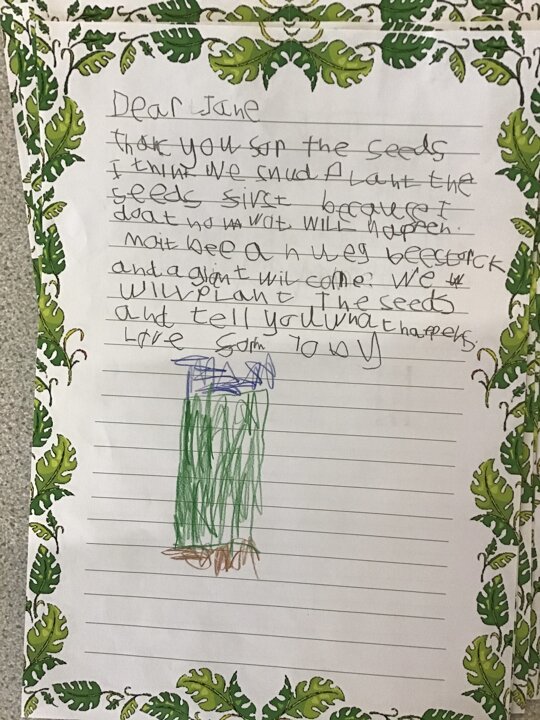 Dear Jane
thak you for the seeds
I think we shud Plant the
seeds first because I
doat now wat will happen.
mait bee a hueg beestork
and a giant wil come. We
will Plant The seeds
and tell you what happens.
Love from